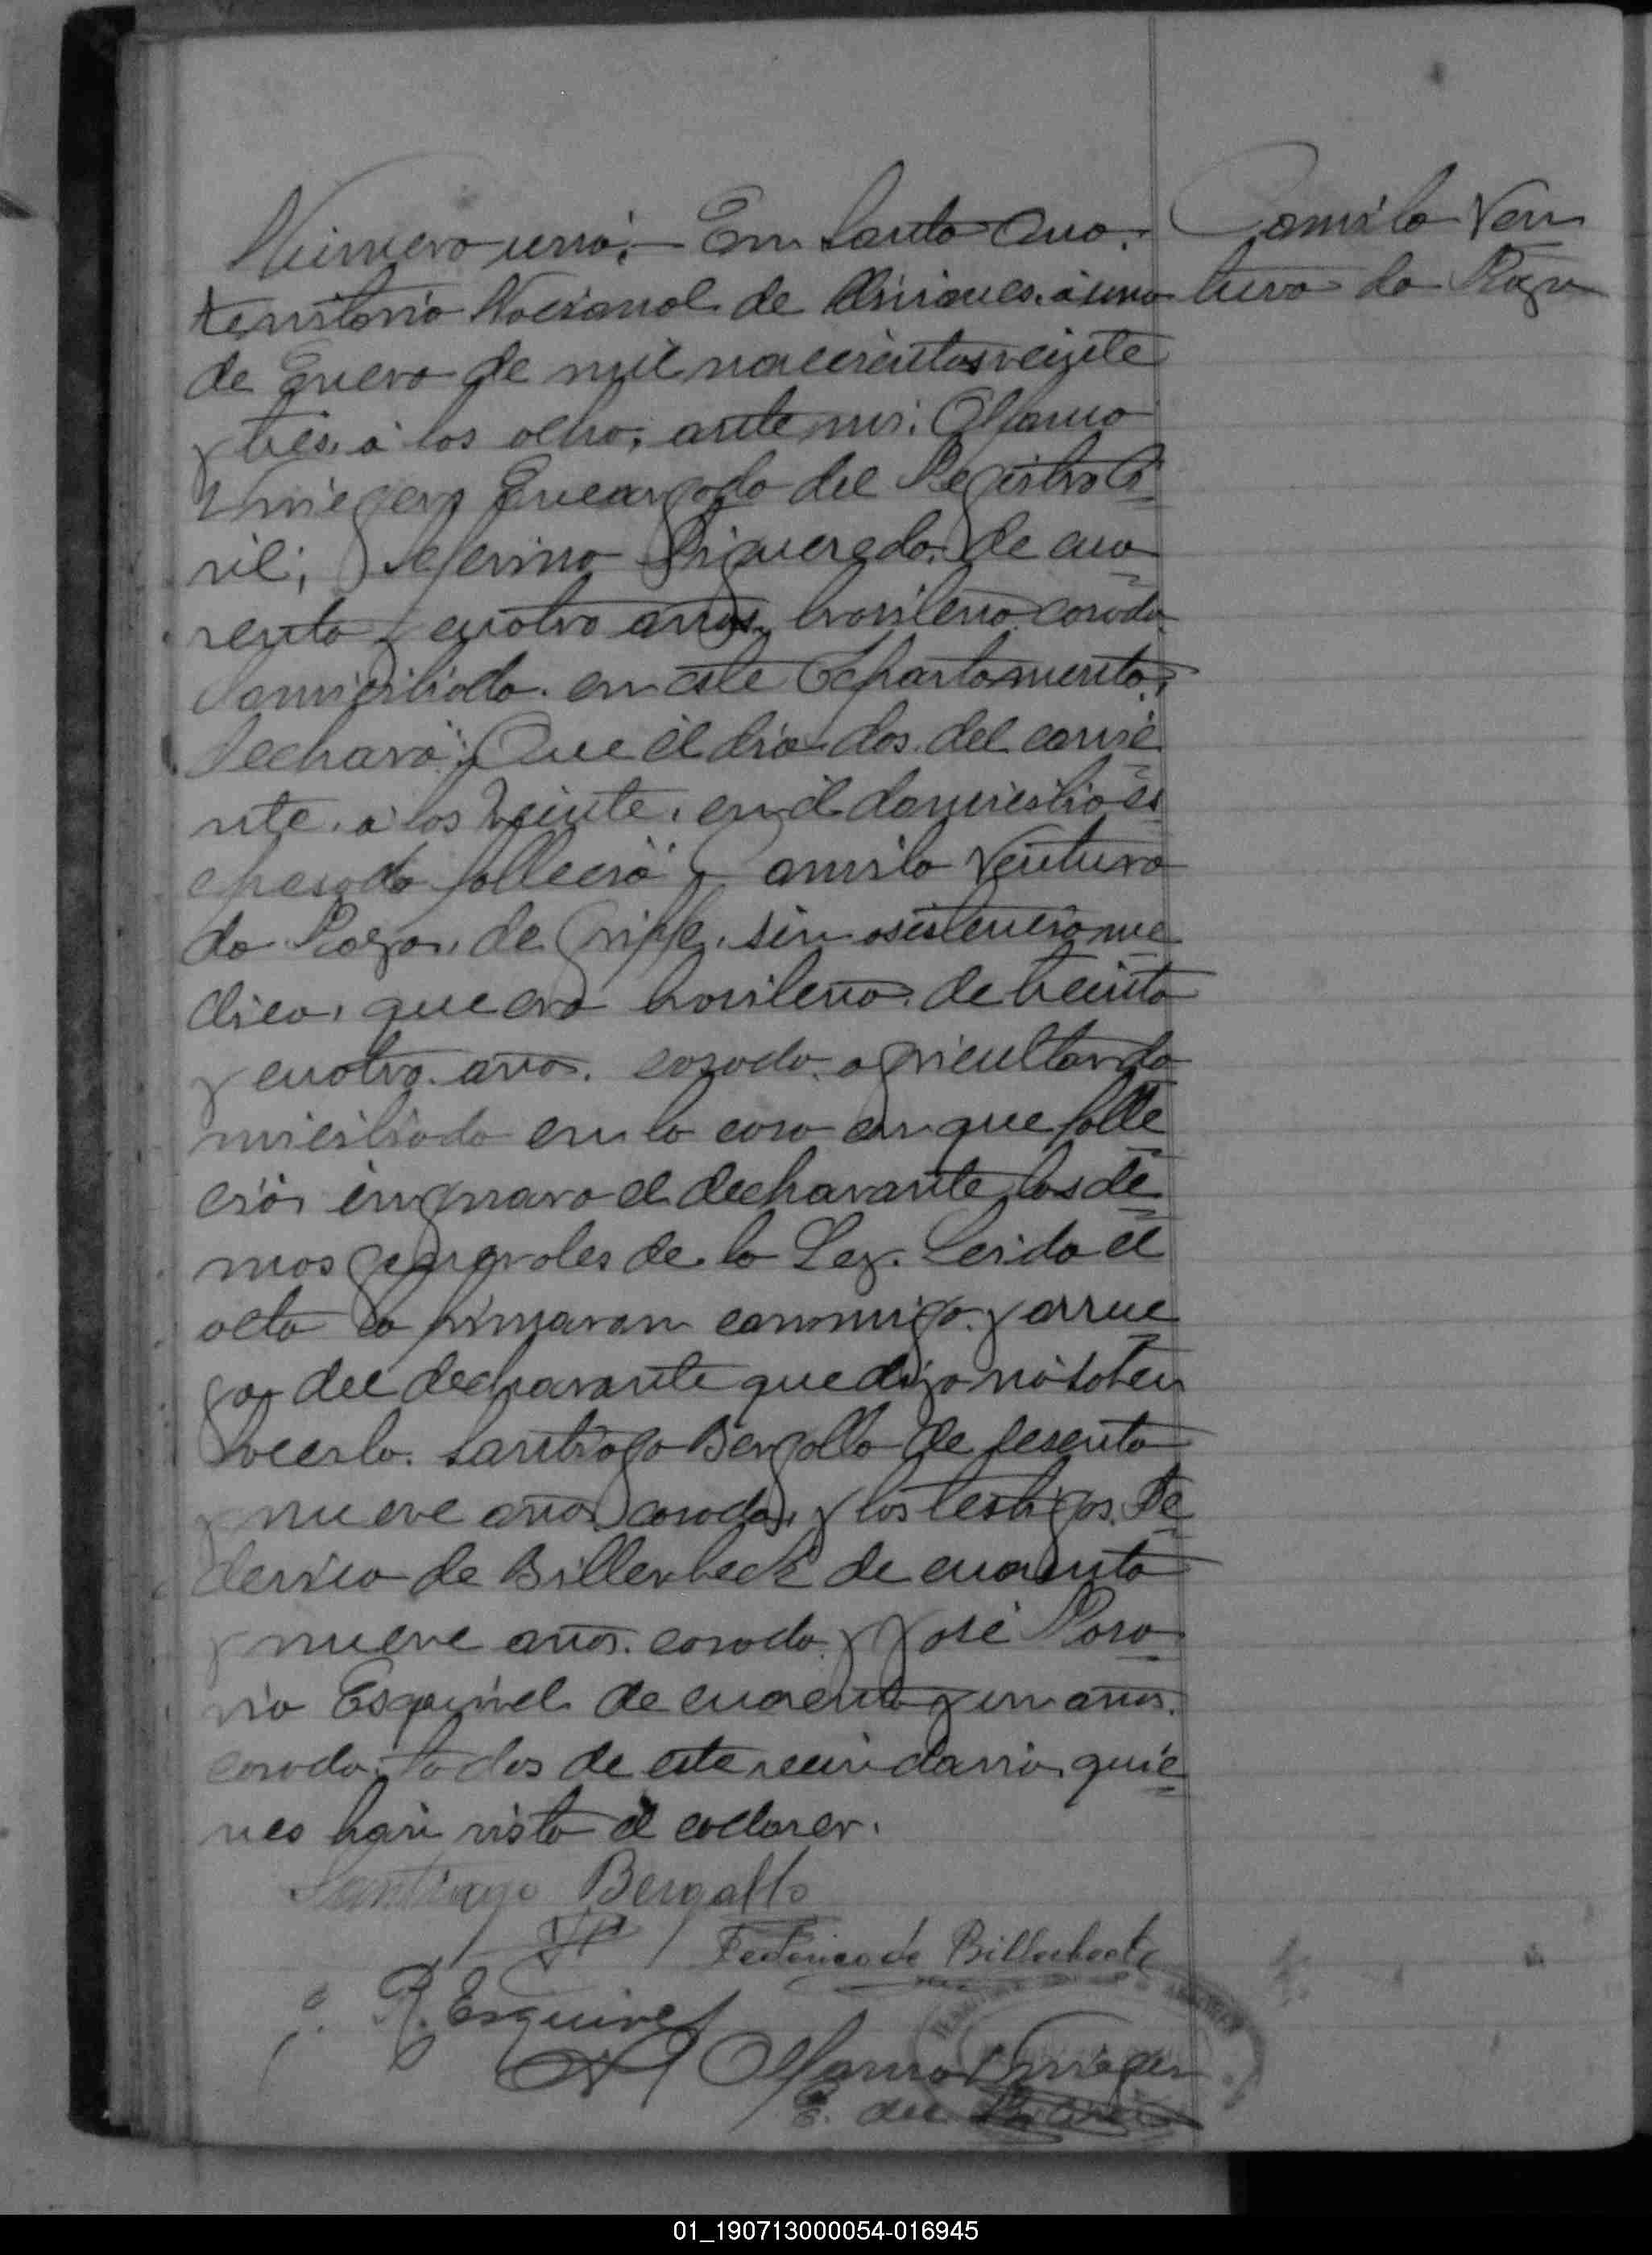 Número uno. En Santa Ana,
territorio Nacional de Misiones, á uno
de Enero de mil novecientos veinte
y tres, á las ocho, ante mi:
Encargado del Registro Ci
vil; Seferino Figueredo, de cua
renta y cuatro años, brasilero, casado,
domiciliado en este Departamento,
declaró: Que el dia dos del corrie
nte, á las veinte, en el domicilio es
presado falleció Camilo Ventura
da Roza, de Grippe, sin asistencia me
dica, que era brasilero, de treinta
y cuatro años, casado, agricultor, do
miciliado en la casa en que falle
ció, ignoraro el declarante las de
mas generales de la Ley. Leida el
acta la firmaron conmigo, y a rrue
go, del declarante que dijo nó saber
hacerlo, Santiago Bergallo de sesenta
y nueve años, casado, y los testigos, Fe
derico de Billerbeck de cuarenta
y nueve años, casado, y José Rosa
rio Esquivel de cuarenta y un años,
casado, todos de este vecindario, quie
nes han visto el cadaver.
Santiago Bergallo
Federico de Billerbeck
J. R. Esquivel
E. del
Camilo Ven
tura da Roza
01_190713000054-016945